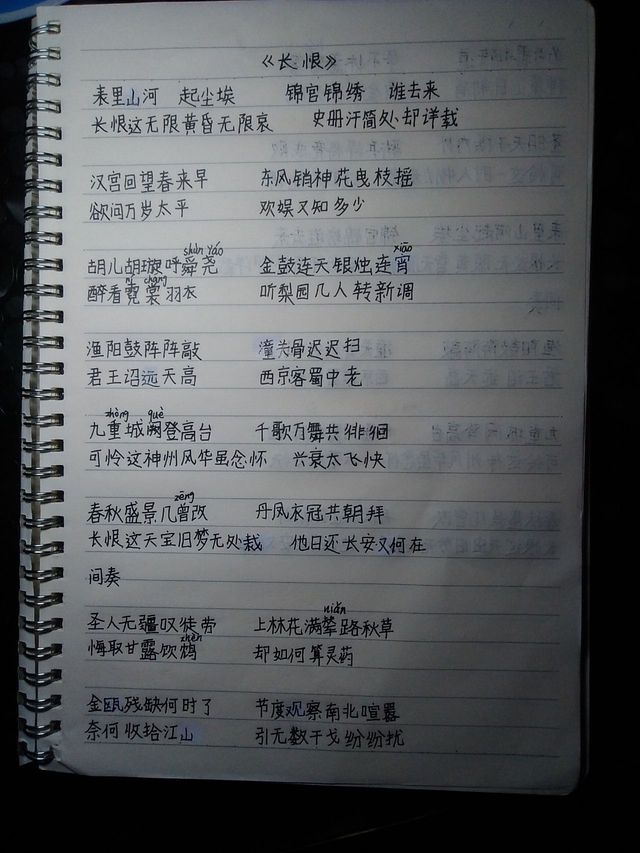 《长恨》
表里山河 起尘埃 锦宫锦绣 谁去来
长恨这无限黄昏无限哀 史册汗简处却详载
汉宫回望春来早 东风销神花曳枝摇
欲问万岁太平 欢娱又知多少
shùn yáo xiāo
胡儿胡璇呼舜尧 金鼓连天银烛连宵
ní cháng
醉看霓裳羽衣 听梨园几人转新调
渔阳鼓阵阵敲 潼关骨迟迟扫
君王诏远天高 西京客蜀中老
chóng què
九重城阙登高台 千歌万舞共徘徊
可怜这神州风华虽念怀 兴衰太飞快
zēng
春秋盛景几曾改 丹凤衣冠共朝拜
长恨这天宝旧梦无处栽 他日还长安又何在
间奏
niǎn
圣人无疆叹徒劳 上林花满辇路秋草
zhèn
悔取甘露饮鸩 却如何算灵药
金瓯残缺何时了 节度观察南北喧嚣
奈何收拾江山 引无数干戈纷纷扰